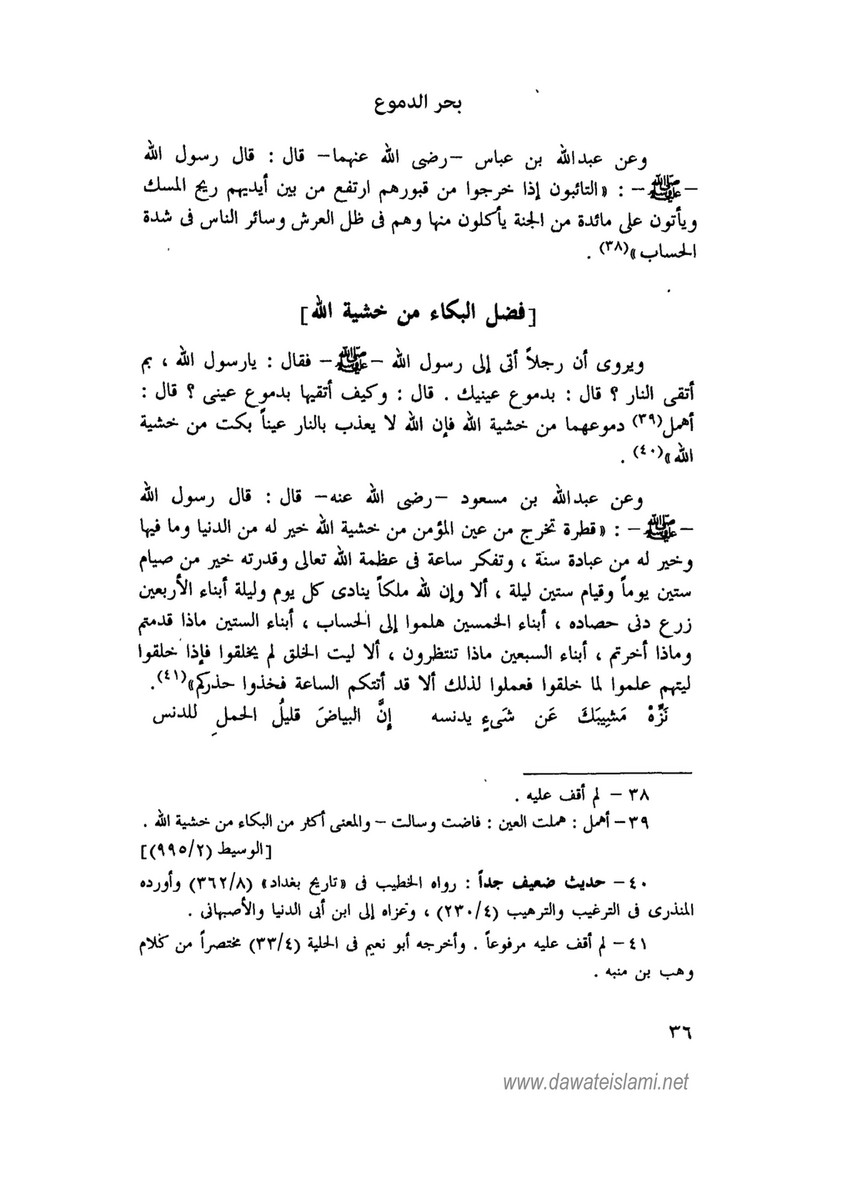 بحر الدموع
وعن عبدالله بن عباس –رضى الله عنهما– قال : قال رسول الله
–ﷺ– : «التائبون إذا خرجوا من قبورهم ارتفع من بين أيديهم ريح المسك
ويأتون على مائدة من الجنة يأكلون منها وهم فى ظل العرش وسائر الناس فى شدة
الحساب»(٣٨) .
[فضل البكاء من خشية الله]
ويروى أن رجلاً أتى إلى رسول الله –ﷺ– فقال : يارسول الله ، بم
أتقى النار ؟ قال : بدموع عينيك . قال : وكيف أتقيها بدموع عينى ؟ قال :
أهمل(٣٩) دموعهما من خشية الله فإن الله لا يعذب بالنار عيناً بكت من خشية
الله»(٤٠) .
وعن عبدالله بن مسعود –رضى الله عنه– قال : قال رسول الله
–ﷺ– : «قطرة تخرج من عين المؤمن من خشية الله خير له من الدنيا وما فيها
وخير له من عبادة سنة ، وتفكر ساعة فى عظمة الله تعالى وقدرته خير من صيام
ستين يوماً وقيام ستين ليلة ، ألا وإن لله ملكاً ينادى كل يوم وليلة أبناء الأربعين
زرع دنى حصاده ، أبناء الخمسين هلموا إلى الحساب ، أبناء الستين ماذا قدمتم
وماذا أخرتم ، أبناء السبعين ماذا تنتظرون ، ألا ليت الخلق لم يخلقوا فإذا خلقوا
ليتهم علموا لما خلقوا فعملوا لذلك ألا قد أتتكم الساعة فخذوا حذركم»(٤١).
نَزِّهْ مَشِيبَكَ عَن شَىءٍ يدنسه إنَّ البياضَ قليلُ الحملِ للدنس
٣٨ – لم أقف عليه .
٣٩– أهمل : هملت العين : فاضت وسالت – والمعنى أكثر من البكاء من خشية الله .
[الوسيط (٩٩٥/٢)]
٤٠– حديث ضعيف جداً : رواه الخطيب فى «تاريخ بغداد» (٣٦٢/٨) وأورده
المنذرى فى الترغيب والترهيب (٢٣٠/٤) ، وعزاه إلى ابن أبى الدنيا والأصبهانى .
٤١– لم أقف عليه مرفوعاً . وأخرجه أبو نعيم فى الحلية (٣٣/٤) مختصراً من كلام
وهب بن منبه .
٣٦
www.dawateislami.net